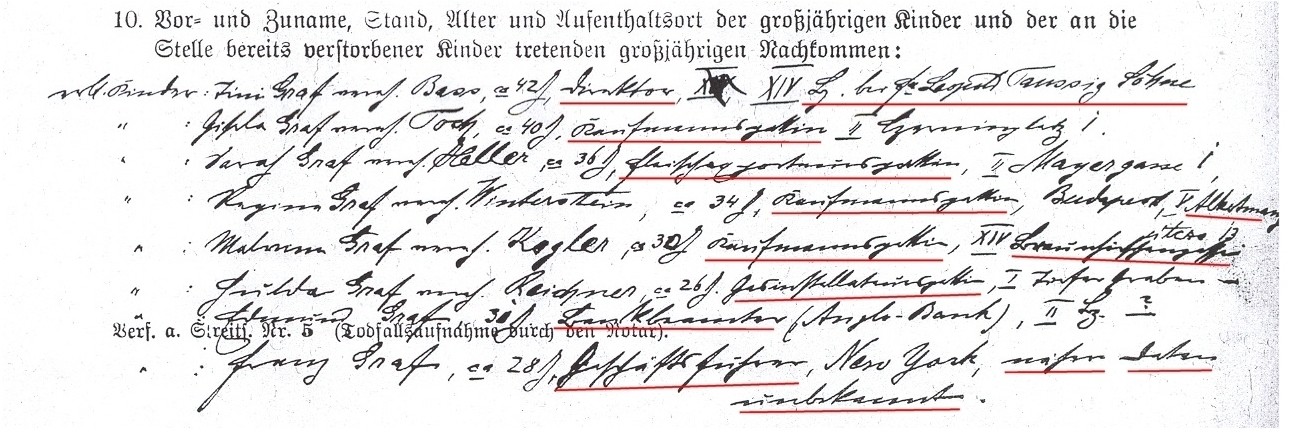 10. Vor- und Zuname, Stand, Alter und Aufenthaltsort der großjährigen Kinder und der an die
Stelle bereits verstorbener Kinder tretenden großjährigen Nachkommen:
erbl. Kinder: Tini Graf verh. Bass, ca 42 J, Direktor, XIV bei Fa Leopold Taussig Söhne
" : Gisela Graf verh. Toch, ca 40 J, Kaufmannsgattin II Czerninplatz 1.
" : Sarah Graf verh. Haller, ca 36 J, II Mayergasse 1,
" : Regina Graf verh. Winterstein, ca 34 J, Kaufmannsgattin, Budapest, V
" : Malvina Graf verh. Kogler, ca 30 J Kaufmannsgattin, XIV
" : Hulda Graf verh. Reichner, ca 26 J. Gasinstallateursgattin, I Tiefer Graben –
" Edmund Graf 30 J. Bankbeamter (Anglo-Bank), II ?
Verf. a. Streits. Nr. 5 (Todfallsaufnahme durch den Notar).
" : Franz Graf, ca 28 J, Geschäftsführer, New York, nähere Daten
unbekannt.